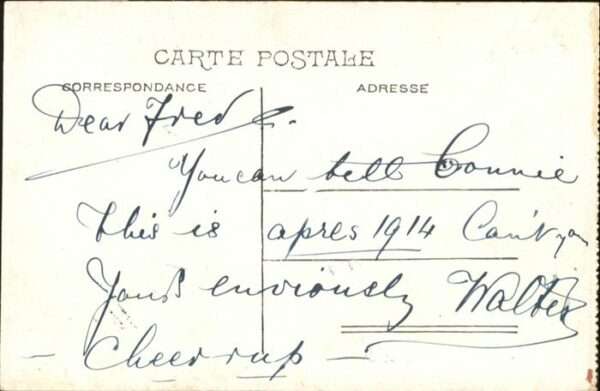 CARTE POSTALE
CORRESPONDANCE ADRESSE
Dear Fred
You can tell Connie
this is apres 1914 Can't you
Yours enviously Walter
— Cheer-up —